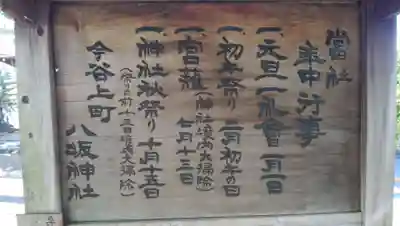 當社
年中行事
一、元旦一礼會 一月一日
一、初午祭り 二月初午の日
一、宮薙 七月十三日
(神社境内大掃除)
一、神社秋祭り 十月十五日
(祭りの前十三日境内大掃除)
今谷上町
八坂神社